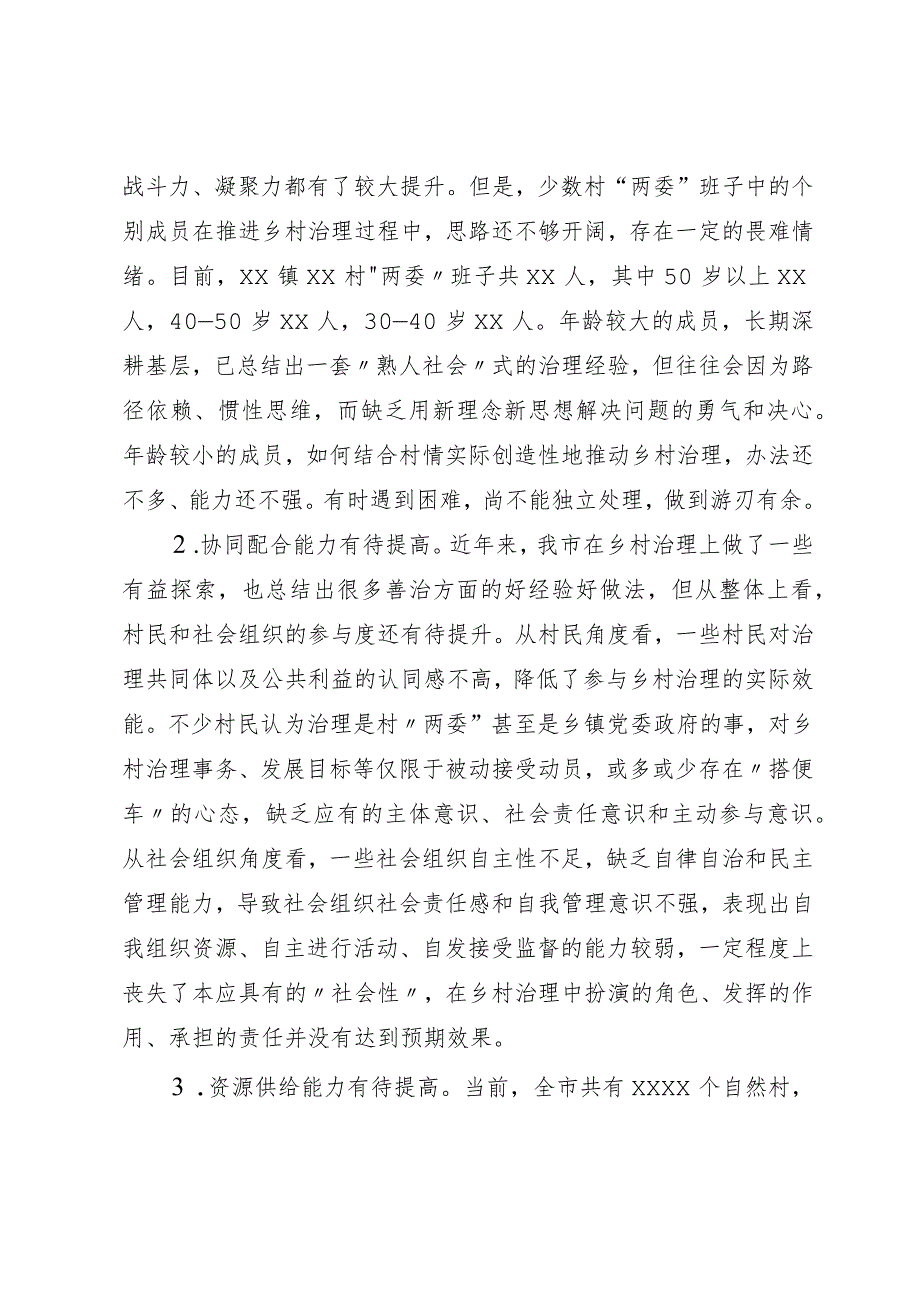 战斗力、凝聚力都有了较大提升。但是，少数村“两委”班子中的个
别成员在推进乡村治理过程中，思路还不够开阔，存在一定的畏难情
绪。目前，XX 镇 XX 村"两委〃班子共 XX 人，其中 50 岁以上 XX
人，40—50 岁 XX 人，30—40 岁 XX 人。年龄较大的成员，长期深
耕基层，已总结出一套〃熟人社会〃式的治理经验，但往往会因为路
径依赖、惯性思维，而缺乏用新理念新思想解决问题的勇气和决心。
年龄较小的成员，如何结合村情实际创造性地推动乡村治理，办法还
不多、能力还不强。有时遇到困难，尚不能独立处理，做到游刃有余。
2 .协同配合能力有待提高。近年来，我市在乡村治理上做了一些
有益探索，也总结出很多善治方面的好经验好做法，但从整体上看，
村民和社会组织的参与度还有待提升。从村民角度看，一些村民对治
理共同体以及公共利益的认同感不高，降低了参与乡村治理的实际效
能。不少村民认为治理是村〃两委”甚至是乡镇党委政府的事，对乡
村治理事务、发展目标等仅限于被动接受动员，或多或少存在〃搭便
车〃的心态，缺乏应有的主体意识、社会责任意识和主动参与意识。
从社会组织角度看，一些社会组织自主性不足，缺乏自律自治和民主
管理能力，导致社会组织社会责任感和自我管理意识不强，表现出自
我组织资源、自主进行活动、自发接受监督的能力较弱，一定程度上
丧失了本应具有的〃社会性〃，在乡村治理中扮演的角色、发挥的作
用、承担的责任并没有达到预期效果。
3 .资源供给能力有待提高。当前，全市共有 XXXX 个自然村，